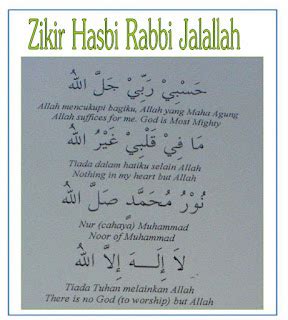 Zikir Hasbi Rabbi Jalallah
حَسْبِيْ رَبِّيْ جَلَّ اللهُ
Allah mencukupi bagiku, Allah yang Maha Agung
Allah suffices for me. God is Most Mighty
مَا فِيْ قَلْبِيْ غَيْرُ اللهُ
Tiada dalam hatiku selain Allah
Nothing in my heart but Allah
نُوْرُ مُحَمَّدٍ صَلَّ اللهُ
Nur (cahaya) Muhammad
Noor of Muhammad
لَا إِلَــهَ إِلَّا اللهُ
Tiada Tuhan melainkan Allah
There is no God (to worship) but Allah